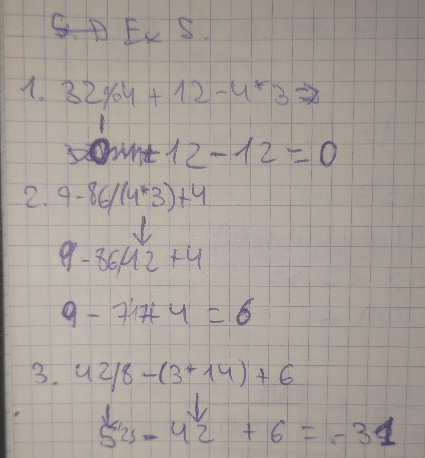 Ex 5.
1. 32%4 + 12 - 4*3 =>
0 + 12 - 12 = 0
2. 9 - 86/(4*3) + 4
9 - 86/12 + 4
9 - 7,17 + 4 = 6
3. 42/8 - (3*14) + 6
5,25 - 42 + 6 = -31